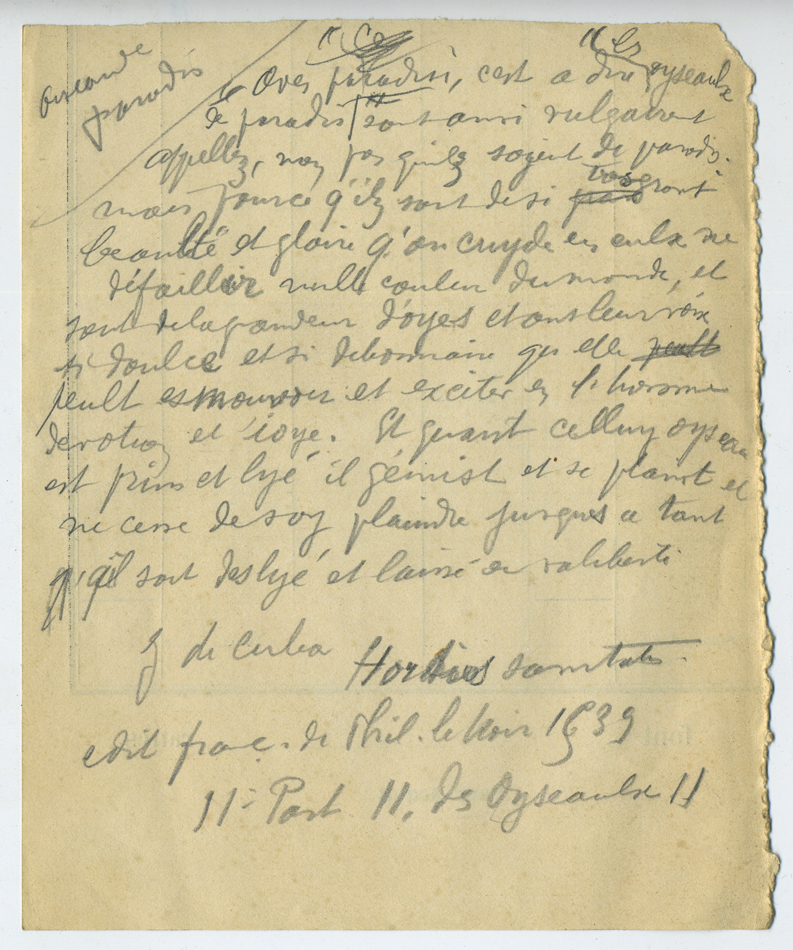 oiseau de
paradis
" Ce " Les
Aves paradisi, c'est a dire oyseaulx
de paradis sont ainsi vulgairent
appellez, non pas quilz soyent de paradis.
mais pource q'ilz sont de si tresgrant
beaulté et gloire q'on cuyde en eulx ne
défaillir nulle couleur du monde, et
sont de la grandeur d'oyes et ont leur voix
si doulce et si debonnaire que elle peult
peult esmouvoir et exciter en l'homme
devotion et ioye. Et quant celluy oyseau
est prins et lyé il gémist et se plaint et
ne cesse de soy plaindre jusques a tant
qu'il soit deslyé et laissé en sa liberté
J de Cuba Hortus sanitatis.
edit franç. de Phil. le Noir 1539
11e Part 11. Des Oyseaulx 11